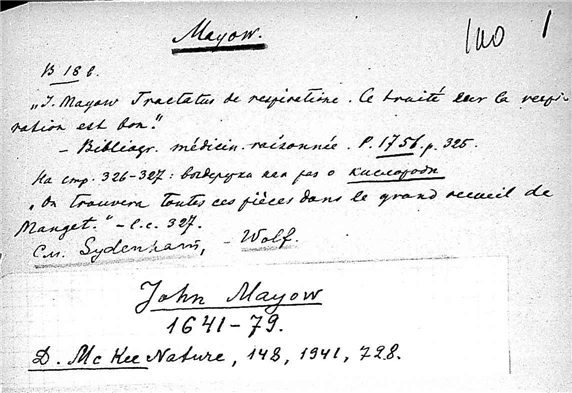 Mayow.
1
В 18 в.
„J. Mayow Tractatus de respiratione. Ce traité sur la respi-
ration est bon."
- Bibliogr. médicin. raisonnée. P. 1756. p. 325.
На стр. 326-327: выдержка как раз о кислороде
„On trouvera toutes ces pièces dans le grand recueil de
Manget." - l.c. 327.
См. Sydenham, - Wolf.
John Mayow
1641-79.
D. McKee Nature, 148, 1941, 728.